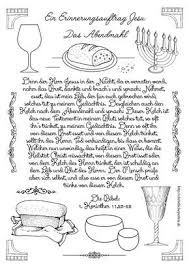 Ein Erinnerungsauftrag Jesu
Das Abendmahl
Denn der Herr Jesus in der Nacht, da er verraten ward,
nahm das Brot, dankte und brach's und sprach: Nehmet,
esset, das ist mein Leib, der für euch gebrochen wird;
solches tut zu meinem Gedächtnis. Desgleichen auch den
Kelch nach dem Abendmahl und sprach: Dieser Kelch ist
das neue Testament in meinem Blut; solches tut, so oft
ihr's trinket, zu meinem Gedächtnis. Denn so oft ihr
von diesem Brot esset und von diesem Kelch trinket,
sollt ihr des Herrn Tod verkündigen, bis daß er kommt.
Welcher nun unwürdig von diesem Brot isset oder von
dem Kelch des Herrn trinket, der ist schuldig an dem Leib
und Blut des Herrn. Der Mensch prüfe
aber sich selbst, und also esse er von diesem Brot und
trinke von diesem Kelch.
Die Bibel:
Korinther 11,23-28